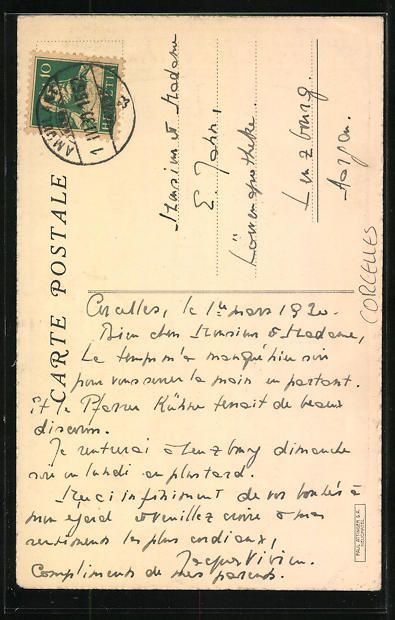 CARTE POSTALE
Monsieur et Madame
E. Jahn,
Löwenapotheke.
Lenzbourg.
Aargau.
CORCELLES
Corcelles, le 1er mars 1930.
Bien chers Monsieur et Madame,
Le temps m'a manqué hier soir
pour vous serrer la main en partant.
Et le Pfarrer tenait de beaux
discours.
Je rentrerai à Lenzburg dimanche
soir ou lundi au plus tard.
Merci infiniment de vos bontés à
mon égard et veuillez croire à mes
sentiments les plus cordiaux,
Jacques Vivien.
Compliments de mes parents.
PAUL ATTINGER S.A.
NEUCHATEL
10